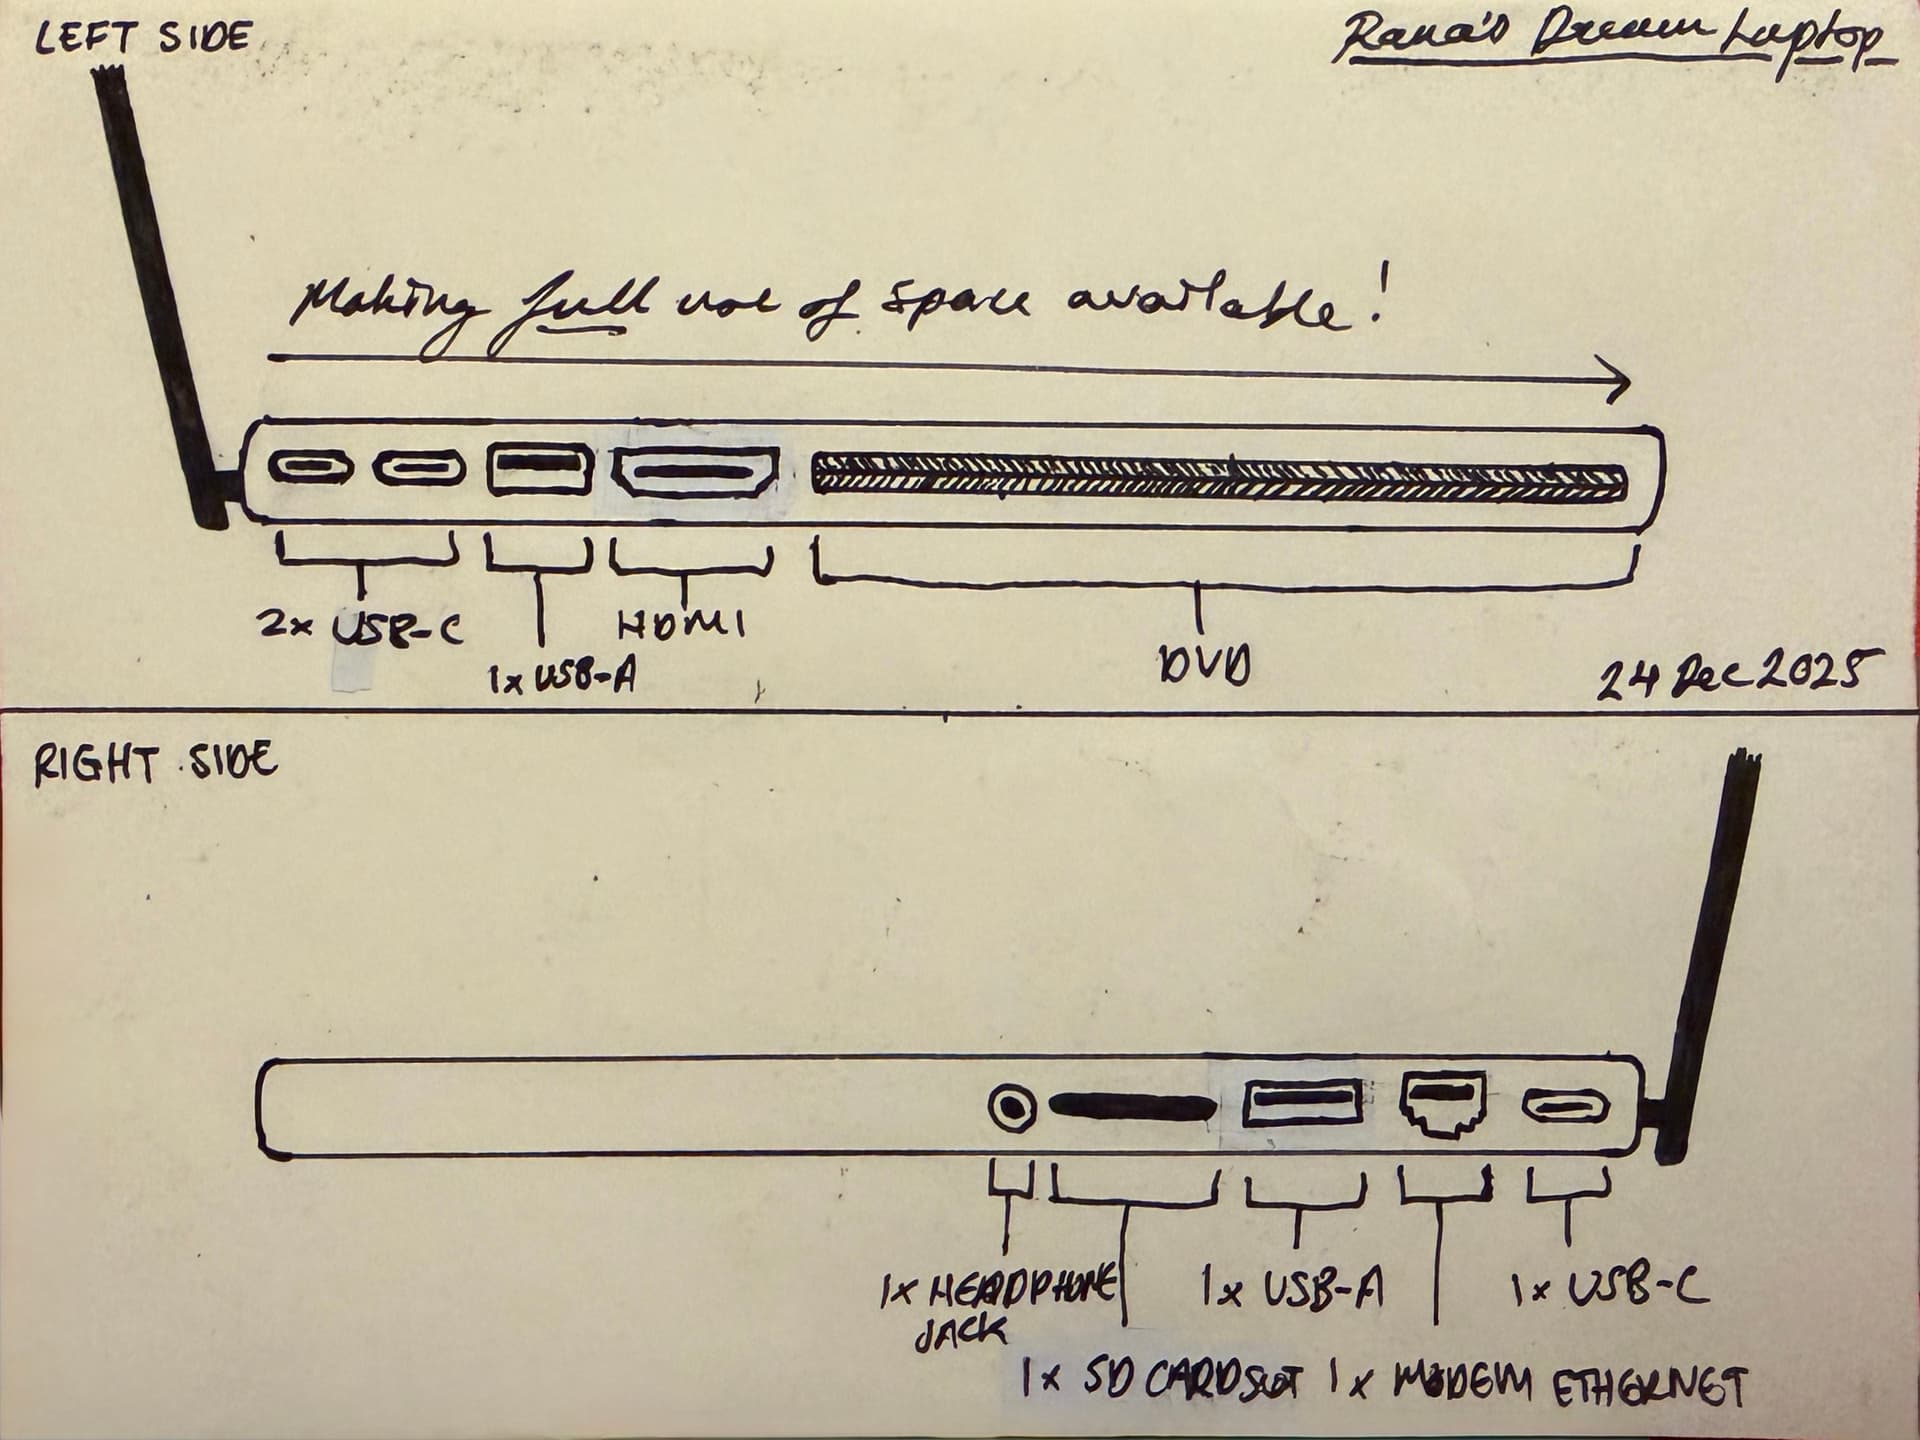 LEFT SIDE
Rana's Dream Laptop
Making full use of space available!
2x USB-C
1x USB-A
HDMI
DVD
24 Dec 2025
RIGHT SIDE
1x HEADPHONE
JACK
1x SD CARD SLOT
1x USB-A
1x MODEM ETHERNET
1x USB-C